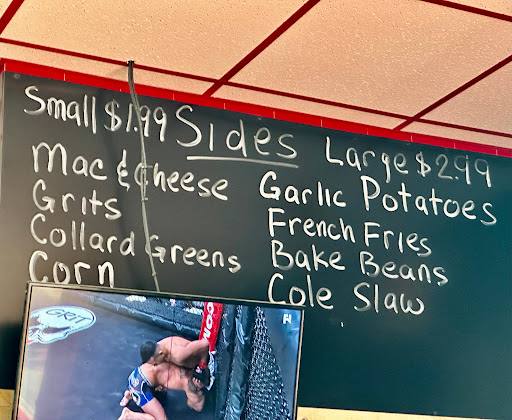 Small $1.99 Sides Large $2.99
Mac & Cheese
Grits
Collard Greens
Corn
Garlic Potatoes
French Fries
Bake Beans
Cole Slaw
GRIT